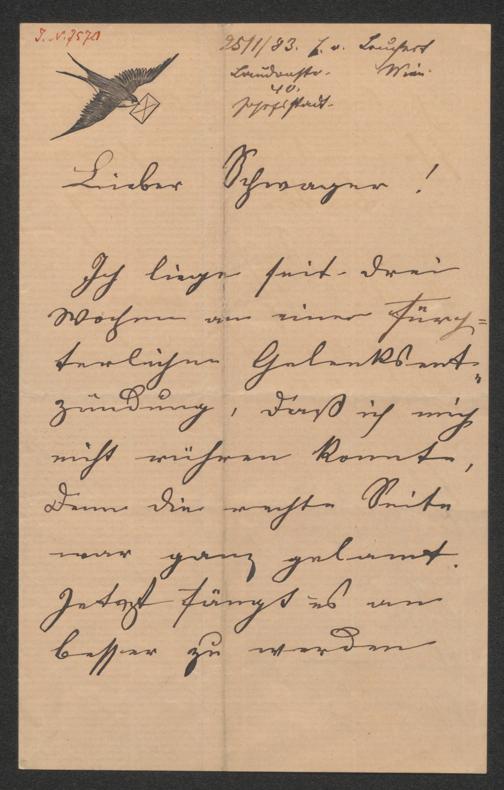 J. N. 7570
25/1/83.
Laudonstr. Wien.
40.
Josefstadt.
Lieber Schwager !
Ich liege seit drei
Wochen an einer fürch=
terlichen Gelenksent"
zündung, daß ich mich
nicht rühren konnte,
denn die rechte Seite
war ganz gelamt.
Jetzt fängt es an
besser zu werden